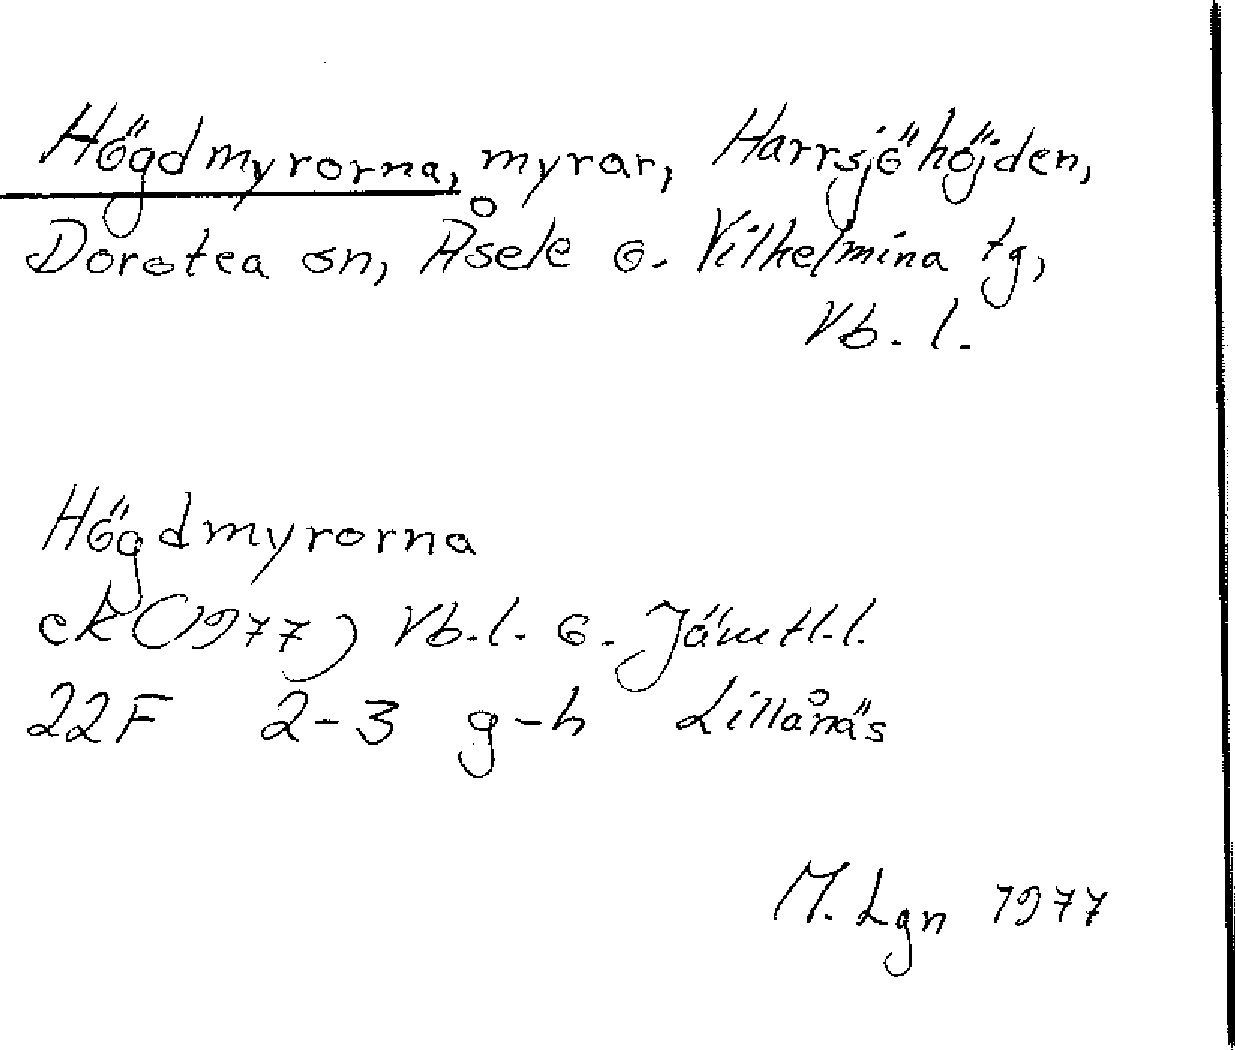 Högdmyrorna, myrar, Harrsjöhöjden,
Dorotea sn, Åsele o. Vilhelmina tg,
Vb. l.
Högdmyrorna
ek (1977) Vb. l. o. Jämtl. l.
22F 2-3 g-h Lillånäs
M. Lgn 1977